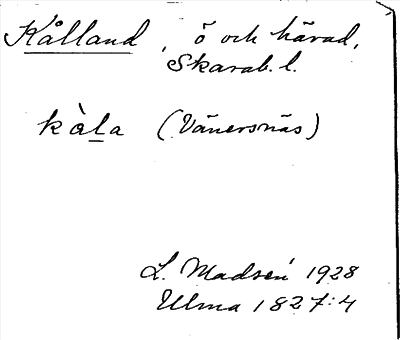 Kålland, ö och härad,
Skarab. l.
kàḻa (Vänersnäs)
L. Madsén 1928
Ulma 1827:4